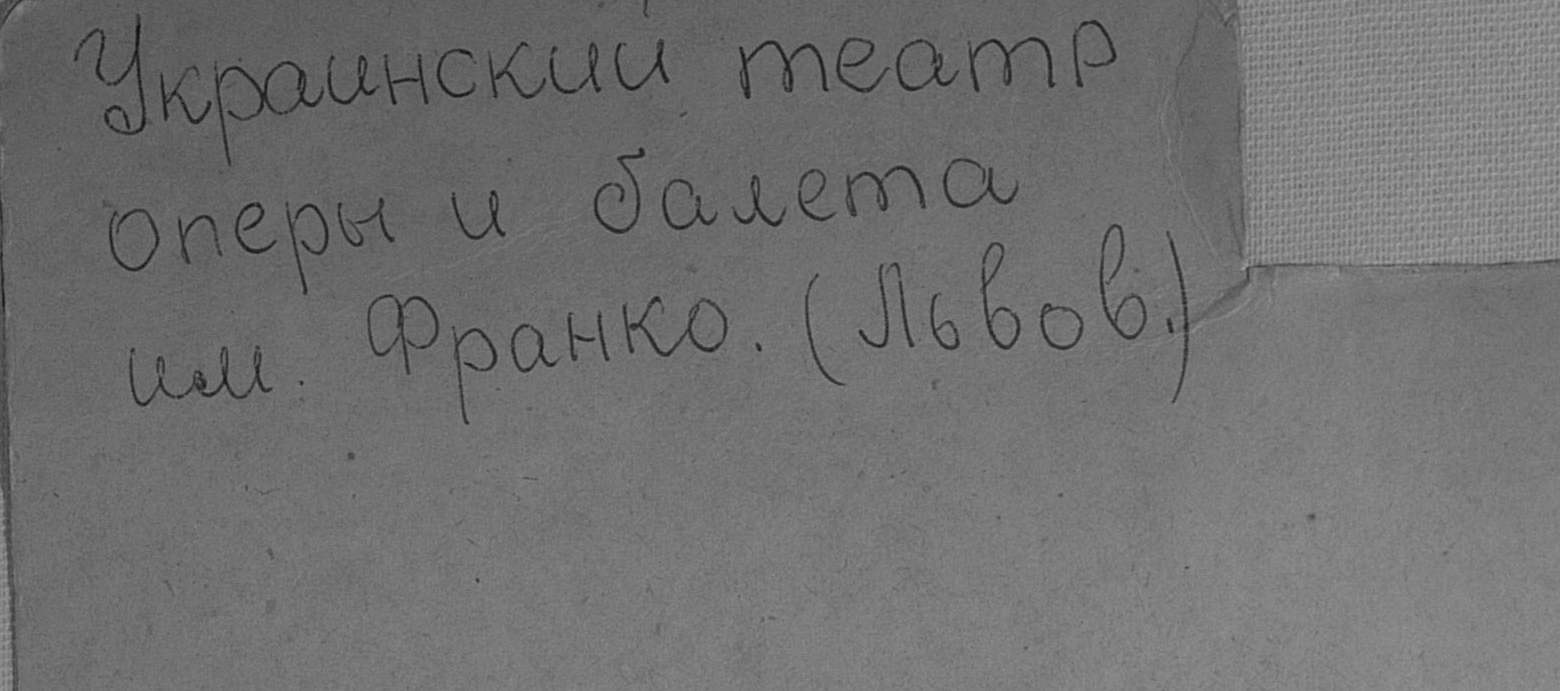 Украинский театр
оперы и балета
им. Франко. (Львов.)